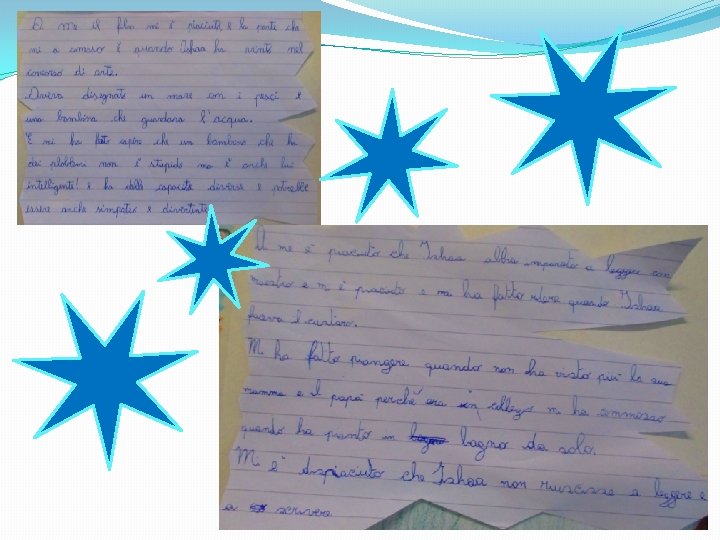 A me il film mi è piaciuto, e la parte che
mi a comosso è quando Ishaa ha vinto nel
concorso di arte.
Aveva disegnato un mare con i pesci e
una bambina che guardava l'acqua.
E mi ha fatto capire che un bambino che ha
dei ploblemi non è stupido ma è anche lui
intelligente! e ha delle capacità diverse e potrebbe
essere anche simpatico e divertente
A me è piaciuto che Ishaa abbia imparato a leggere con
maestro e mi è piaciuto e mi ha fatto ridere quando Ishaa
faceva il
Mi ha fatto piangere quando non ha visto più la sua
mamma e il papà perché era in collegio mi ha commosso
quando ha pianto in bagno da solo.
Mi è dispiaciuto che Ishaa non riuscisse a leggere e
a scrivere